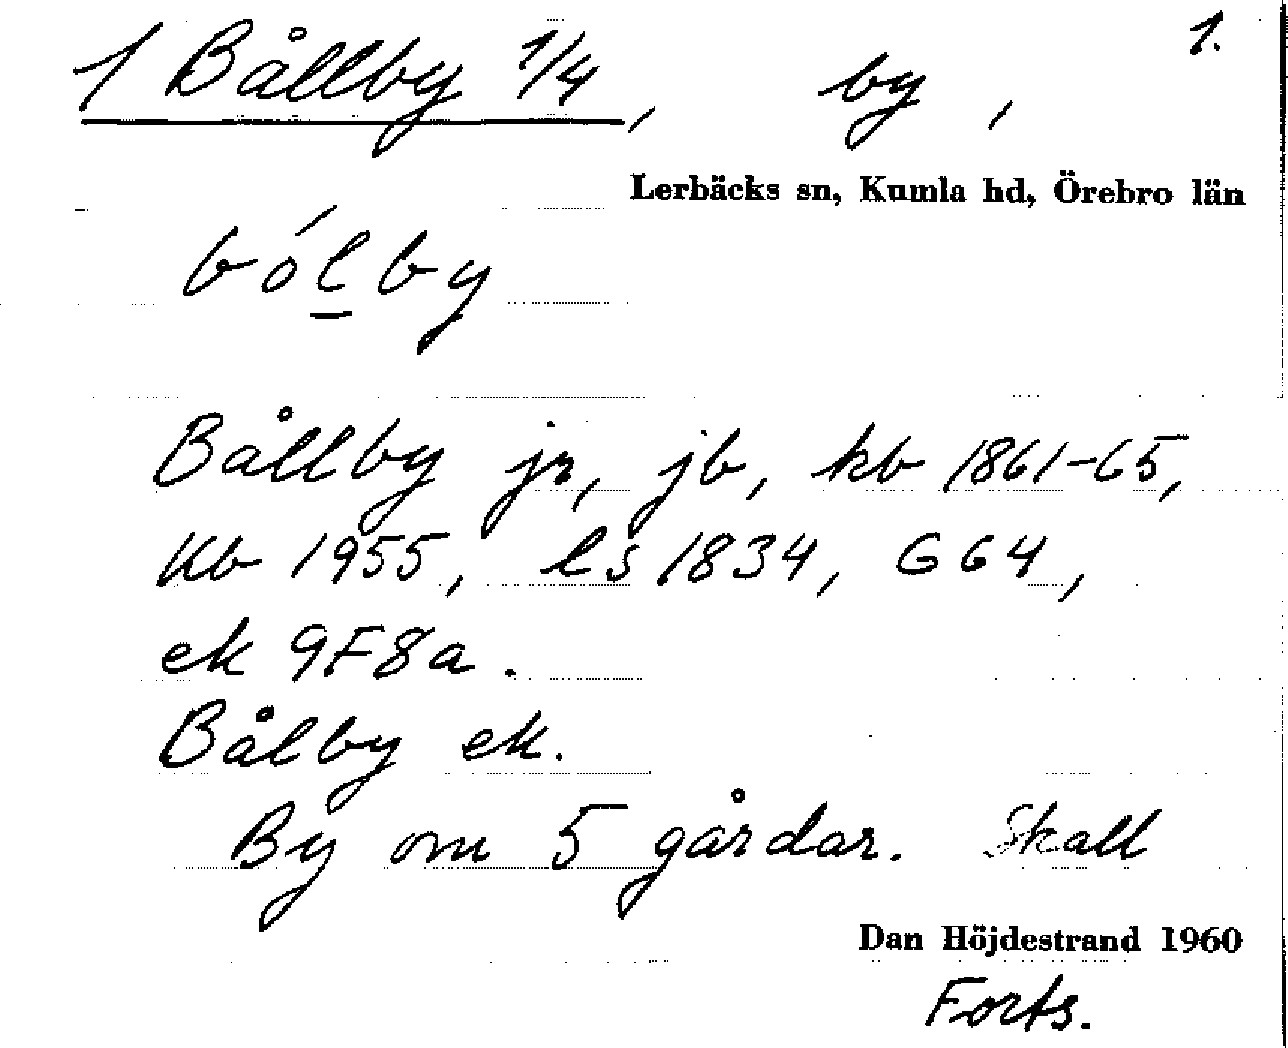 1 Bållby 1/4, by, 1.
Lerbäcks sn, Kumla hd, Örebro län
bólby
Bållby jr, jb, kb 1861-65,
Kb 1955, ls 1834, G 64,
ek 9F8a.
Bålby ek.
By om 5 gårdar. Skall
Dan Höjdestrand 1960
Forts.